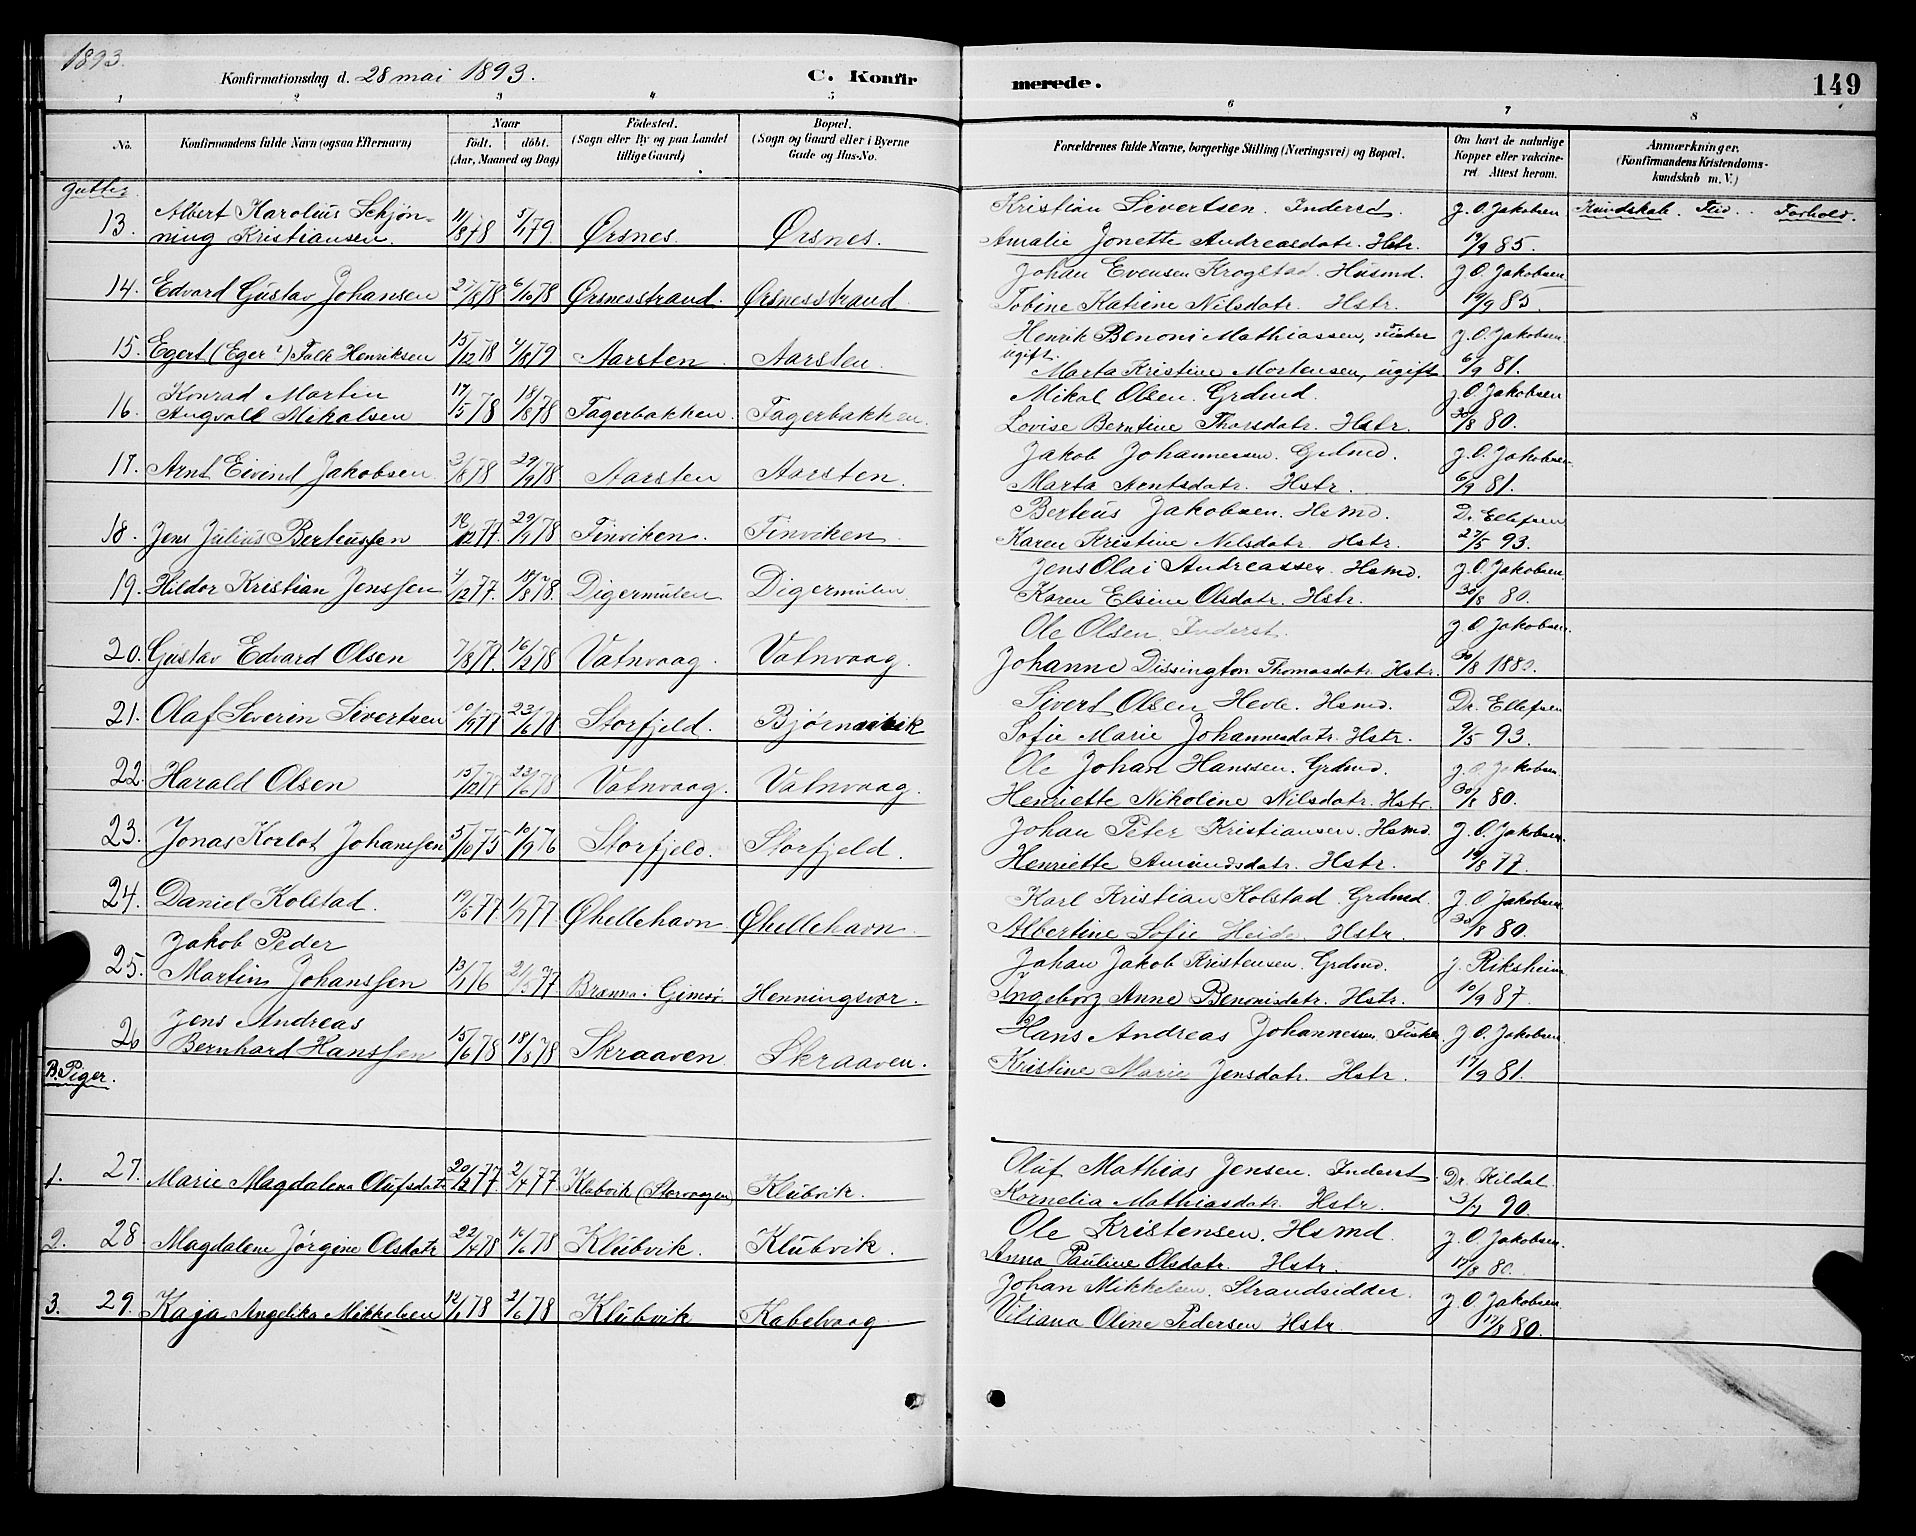 1893.
Konfirmationsdag d. 28 mai 1893.
C. Konfir
merede.
149
1 2 3 4 5 6 7 8
No.
Konfirmandens fulde Navn (ogsaa Efternavn)
Naar
født. døbt.
(Aar, Maaned og Dag)
Fødested.
(Sogn eller By og paa Landet tillige Gaard)
Bopæl.
(Sogn og Gaard eller i Byerne Gade og Hus-No.
Forældrenes fulde Navne, borgerlige Stilling (Næringsvei) og Bopæl.
Om havt de naturlige Kopper eller vaccineret. Attest herom.
Anmærkninger.
(Konfirmandens Kristendomskundskab m. V.)
Gutter.
Kundskab. Flid. Forhold.
13. Albert Karolius Schjøn-
ning Kristiansen. 11/8 78 5/1 79. Ørsnes. Ørsnes.
Kristian Sivertsen. Inderst. J. O. Jakobsen
Amalie Jonette Andreasdatr. Hstr. 19/9 85.
14. Edvard Gustav Johansen 27/8 78 6/10 78 Ørsnesstrand. Ørsnesstrand.
Johan Evensen Krogstad. Husmd. J. O. Jakobsen
Tobine Katrine Nilsdatr. Hstr. 19/9 85
15. Egert (Eger!) Falk Henriksen 15/12 78 4/8 79 Aarsten. Aarsten.
Henrik Benoni Mathiassen, Fisker J. O. Jakobsen
ugift.
Marta Kristine Mortensen, ugift 6/9 81.
16. Konrad Martin
Angvald Mikalsen 17/5 78 18/8 78 Fagerbakken. Fagerbakken.
Mikal Olsen. Grdmd. J. O. Jakobsen
Lovise Berntine Thorsdatr. Hstr. 30/8 80.
17. Arnt Eivind Jakobsen 3/8 78 29/9 78 Aarsten Aarsten.
Jakob Johannessen. Grdmd. J. O. Jakobsen.
Marta Arntsdatr. Hstr. 6/9 81.
18. Jens Julius Berteussen 12 77. 29/9 78 Finviken. Finviken.
Berteus Jakobsen. Hsmd. Dr. Ellefsen
Karen Kristine Nilsdatr. Hstr. 27/5 93.
19. Hildor Kristian Jenssen 4/12 77. 18/8 78. Digermulen Digermulen.
Jens Olai Andreassen. Hsmd. J. O. Jakobsen
Karen Elsine Olsdatr. Hstr. 30/8 80.
20. Gustav Edvard Olsen 7/8 77. 16/2 78 Vatnvaag. Vatnvaag.
Ole Olsen. Inderst. J. O. Jakobsen.
Johanne Dissington Thomasdatr. Hstr. 30/8 1880.
21. Olaf Severin Sivertsen 10/9 77 23/6 78 Storfjeld. Bjørnevik
Sivert Olsen Hevle. Hsmd. Dr. Ellefsen
Sofie Marie Johannesdatr. Hstr. 9/5 93.
22. Harald Olsen 15/12 77 23/6 78 Vatnvaag. Vatnvaag.
Ole Johan Hanssen. Grdmd. J. O. Jakobsen
Henriette Nikoline Nilsdatr. Hstr. 30/8 80.
23. Jonas Korlot Johanssen 5/10 75 10/9 76 Storfjeld. Storfjeld.
Johan Peter Kristiansen. Hsmd. J. O. Jakobsen.
Henriette Amundsdatr. Hstr. 19/8 77.
24. Daniel Kolstad. 12/5 77 1/7 77 Øhellehavn Øhellehavn.
Karl Kristian Kolstad. Grdmd. J. O. Jakobsen.
Albertine Sofie Heide. Hstr. 30/8 80.
25. Jakob Peder
Martin Johanssen 13/1 76 21/5 77 Brænna i Gimsø Henningsvær.
Johan Jakob Kristensen. Grdmd. J. Riksheim
Ingeborg Anne Benonisdatr. Hstr. 10/9 87.
26 Jens Andreas
Bernhard Hanssen 15/6 78 18/8 78 Skraaven Skraaven.
Hans Andreas Johannessen Fisker. J. O. Jakobsen
Kristine Marie Jensdatr. Hstr. 17/9 81.
B. Piger.
1. 27. Marie Magdalena Olufsdatr 20/2 77. 2/4 77 Klubvik (Storvaagen) Klubvik.
Oluf Mathias Jensen. Inderst Dr. Kildal.
Kornelia Mathiasdatr. Hstr. 3/7 90.
2. 28 Magdalene Jørgine Olsdatr 22/4 78 16/6 78 Klubvik. Klubvik.
Ole Kristensen. Hsmd. J. O. Jakobsen.
Anna Pauline Olsdatr. Hstr. 17/8 80.
3. 29. Kaja Angelika Mikkelsen 12/1 78 2/6 78 Klubvik Kabelvaag
Johan Mikkelsen. Strandsidder. J. O. Jakobsen
Viliana Oline Pedersen Hstr. 17/8 80.